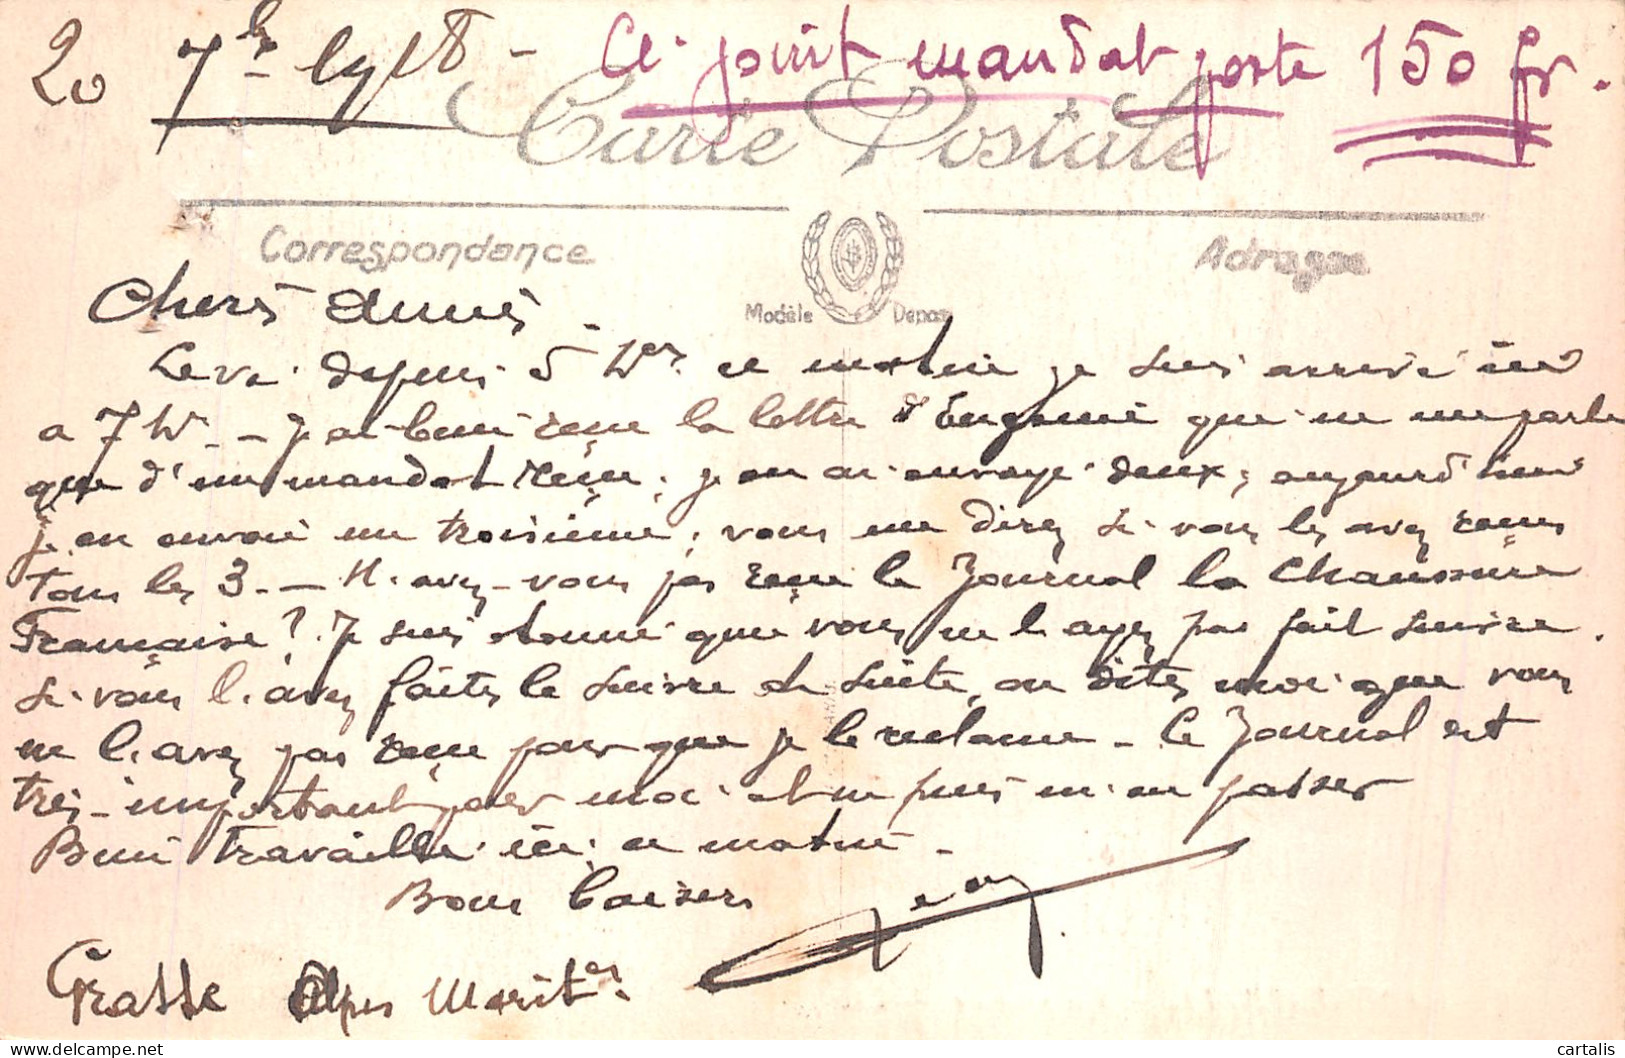 20 7bre 1918 - Ci-joint mandat poste 150 fr.
Carte Postale
Correspondance
Adresse
Modèle Déposé
Chers Aimés
Levé depuis 5 hres ce matin je suis arrivé ici
a 7 h. - J'ai bien reçu la lettre d'Eugénie qui ne me parle
que d'un mandat reçu ; j'en ai envoyé deux, aujourd'hui
j'en envoi un troisième ; vous me direz si vous les avez reçus
tous les 3. - N'avez-vous pas reçu le Journal la Chaussure
Française ? Je suis étonné que vous ne l'ayez pas fait suivre.
Si vous l'avez faites le suivre de suite, ou dites moi que vous
ne l'avez pas reçu pour que je le réclame - Le Journal est
très-important pour moi et ne puis m'en passer
Bien travaillé ici ce matin -
Bons baisers
Grasse Alpes Maritmes
cartalis